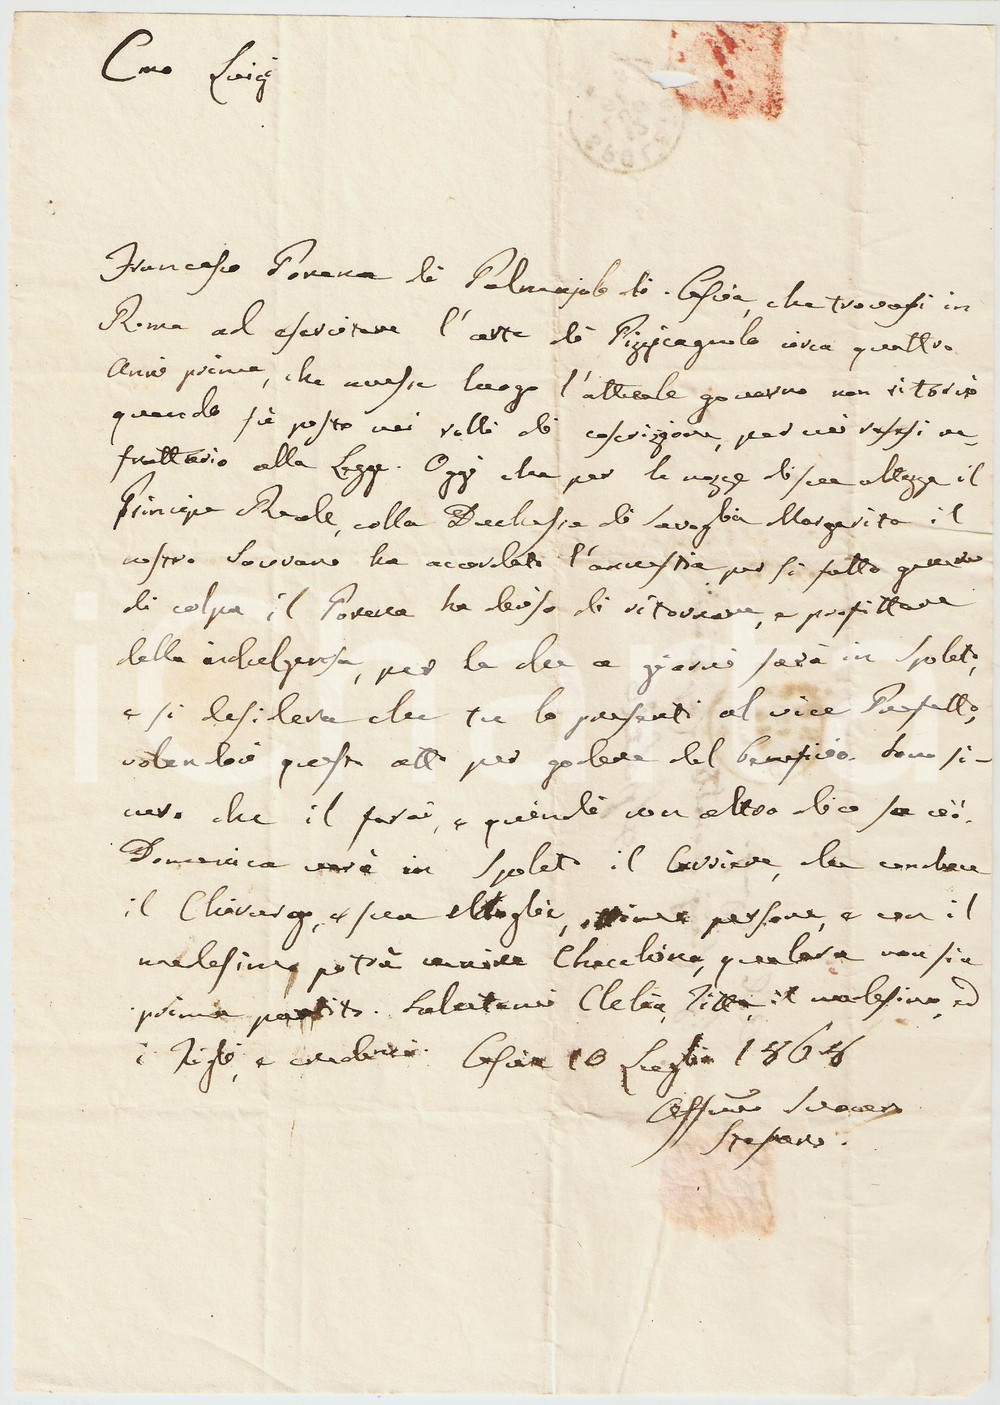 Cmo Luigi
Francesco Porena di Palmajolo di Cascia, che trovasi in
Roma ad esercitare l'arte di Pizzicagnolo circa quattro
anni prima, che avesse luogo l'attuale governo non ritornò
quando fù posto nei rolli di coscrizione, per cui resesi re-
frattario alla Legge. Oggi che per le nozze di sua altezza il
Principe Reale, colla Duchessa di Savoglia Margarita il
nostro Sovrano ha accordato l'amnistia per sì fatto genere
di colpa il Porena ha deciso di ritornare, e profittare
della indulgenza, per lo che a giorni sarà in Spoleto,
e si desidera che tu lo presenti al vice Prefetto,
volendoci questo atto per godere del beneficio. Sono si-
curo che il farai, e quindi non altro dico su ciò.
Domenica verrà in Spoleto il Corriere, che conduce
il Chirurgo, e sua Moglie, persone, e con il
medesimo potrà venire Checchina, qualora non sia
prima partita. Salutami Clelia, Titta, il medesimo, ed
i Figli, e credimi. Cascia 10 Luglio 1868
Affmo Suocero
Stefano.